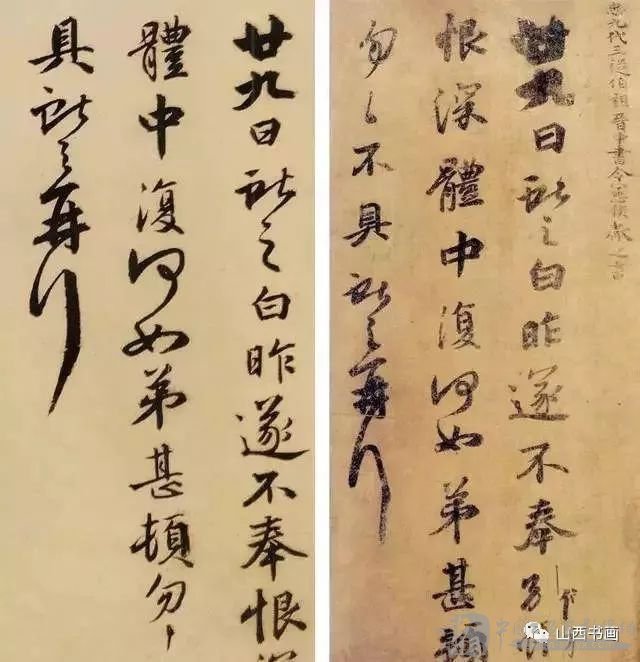 廿九日獻之白昨遂不奉恨深
體中復何如弟甚頓勿々
具獻之再拜
臣九代三從伯祖晉中書令憲侯獻之書
廿九日獻之白昨遂不奉別
恨深體中復何如弟甚頓
勿々不具獻之再拜
山西书画